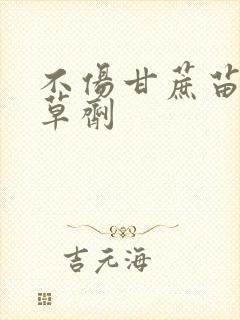 不傷甘蔗苗
草劑
吉元海